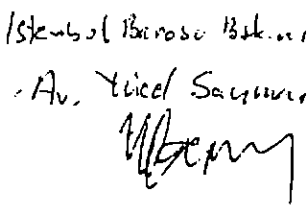 İstanbul Barosu Başkanı
Av. Yücel Sayman